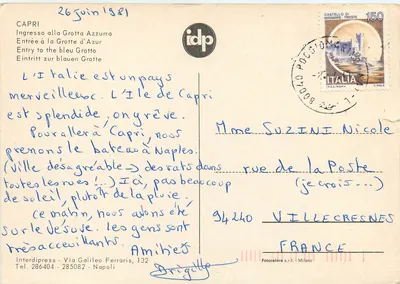 26 juin 1981
CAPRI
Ingresso alla Grotta Azzurra
Entrée à la Grotte d'Azur
Entry to the bleu Grotto
Eintritt zur blauen Grotte
idp
150
ITALIA
80040 POGGIOM
L'Italie est un pays
merveilleux. L'Ile de Capri
est splendide, on grêve.
Pour aller à Capri, nous
prenons le bateau à Naples.
(Ville désagréable → des rats dans
toutes les rues!..) Ici, pas beaucoup
de soleil, plutôt de la pluie.
Ce matin, nous avons été
sur le Vésuve. Les gens sont
très accueillants.
Amitiés
Brigitte
Mme SUZINI Nicole
rue de la Poste
(je crois...)
94240 VILLECRESNES
FRANCE
Interdipress - Via Galileo Ferraris, 132
Tel. 286404 - 285082 - Napoli